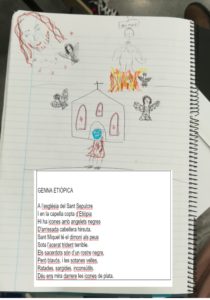 GENNA ETIÒPICA
A l'església del Sant Sepulcre
I en la capella copta d'Etiòpia
Hi ha icones amb angelets negres
D'arrissada cabellera hirsuta.
Sant Miquel té el dimoni als peus
Sota l'acerat trident terrible.
Els sacerdots són d'un rostre negre,
Però blavís, i les sotanes velles.
Ratades, sargides, inconsútils.
Déu ens mira darrere les icones de plata.